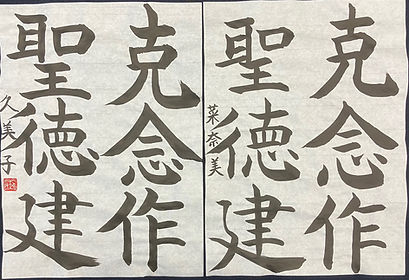 克念作
聖德建
菜奈美
克念作
聖德建
久美子